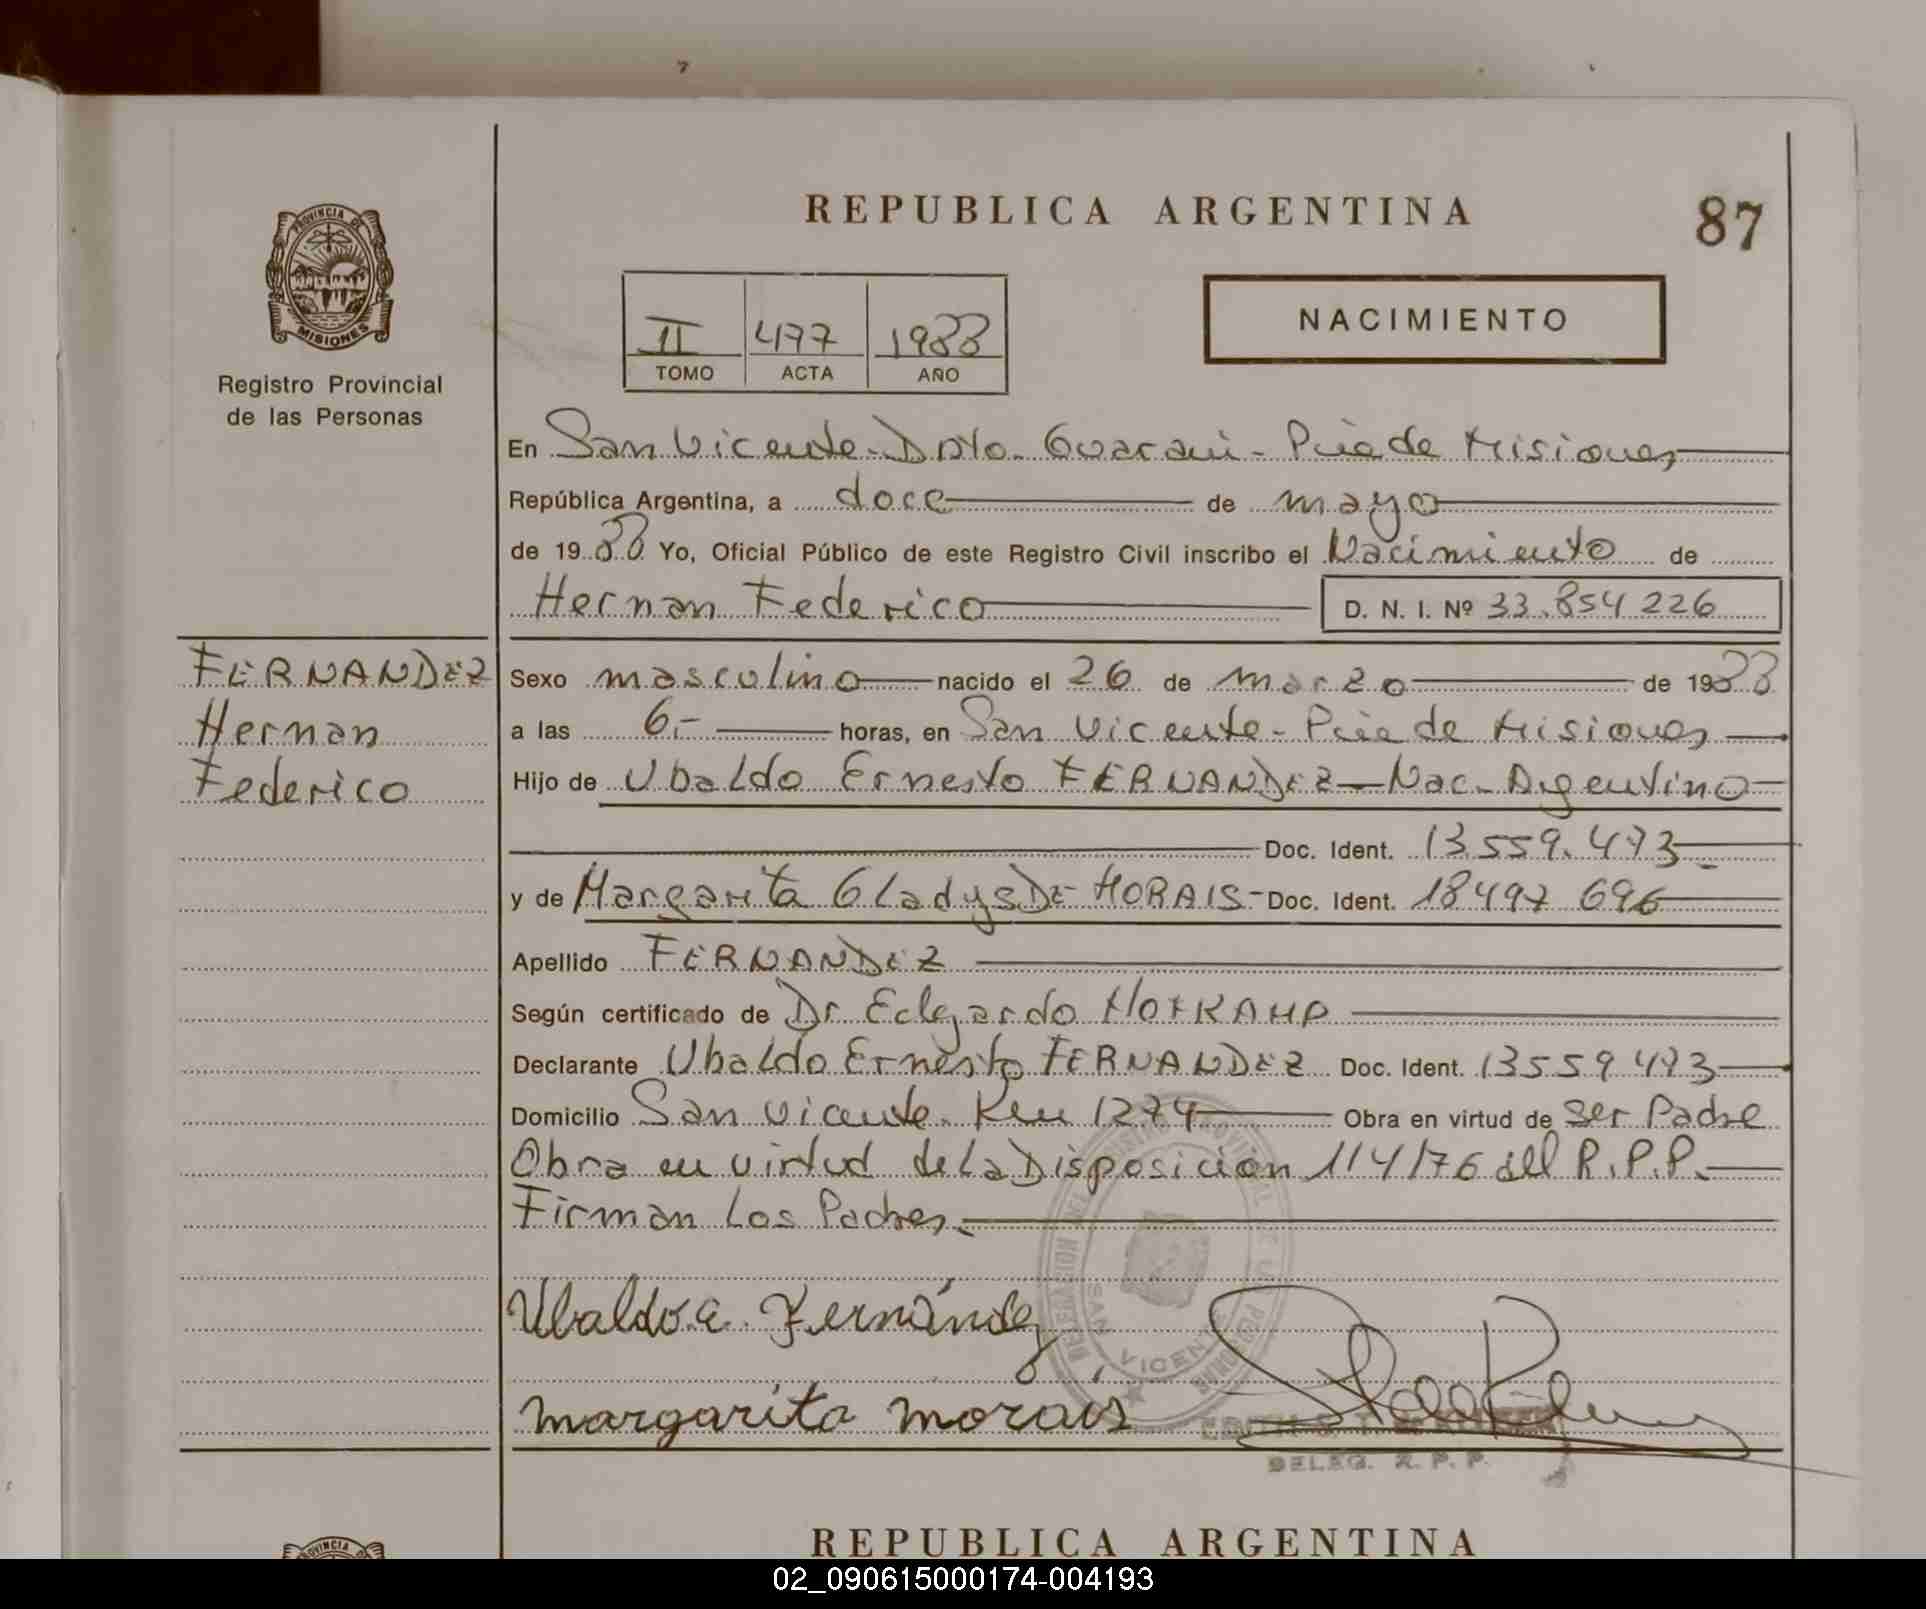 REPUBLICA ARGENTINA
87
PROVINCIA DE
MISIONES
Registro Provincial
de las Personas
II 477 1988
TOMO ACTA AÑO
NACIMIENTO
En San Vicente - Dpto. Guarani - Pcia de Misiones
República Argentina, a doce de mayo
de 1988 Yo, Oficial Público de este Registro Civil inscribo el Nacimiento de
Hernan Federico D. N. I. Nº 33.854 226
FERNANDEZ
Hernan
Federico
Sexo masculino nacido el 26 de marzo de 1988
a las 6.- horas, en San Vicente - Pcia de Misiones
Hijo de Ubaldo Ernesto FERNANDEZ - Nac. Argentino
Doc. Ident. 13.559.473
y de Margarita Gladys DE MORAIS - Doc. Ident. 18497 696
Apellido FERNANDEZ
Según certificado de Dr Edgardo HOFKAMP
Declarante Ubaldo Ernesto FERNANDEZ Doc. Ident. 13559 473
Domicilio San Vicente. Km 1274 Obra en virtud de ser Padre
Obra en virtud de la Disposición 114/76 del R.P.P.
Firman Los Padres.
Ubaldo E. Fernández
margarita morais
SAN VICENTE
DELEG. R. P. P.
PROVINCIA DE
REPUBLICA ARGENTINA
02_090615000174-004193